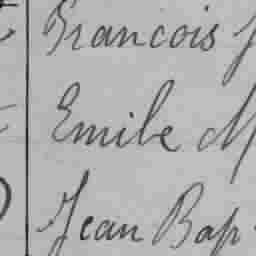 Francois
Emile M
Jean Bap